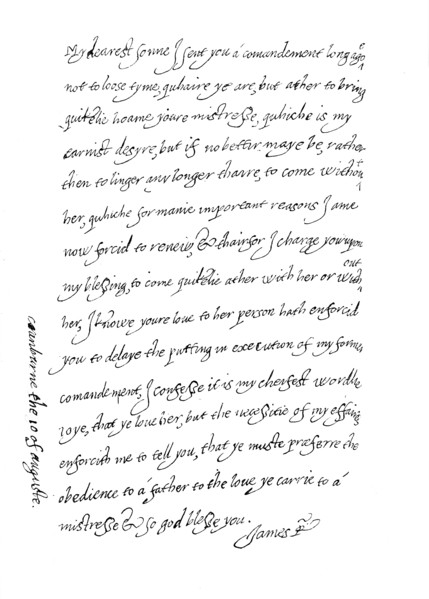 My dearest sonne I sent you á comandement long agoe
not to loose tyme, quhaire ye are, but ather to bring
quikelie hoame youre mistresse, quhiche is my
earnist desyre, but if no bettir maye be, rather
then to linger any longer thaire, to come without
her, quhiche for manie important reasons I ame
now forcid to renew, & thairfor I charge you upon
my blessing, to come quikelie ather with her or without
her, I knowe youre love to her person hath enforcid
you to delaye the putting in execution of my former
comandement, I confesse it is my cheifest wordlie
ioye, that ye love her, but the necessitie of my effairs
enforcith me to tell you, that ye muste præferre the
obedience to á father to the love ye carrie to á
mistresse & so god blesse you.
James R
cranburne the 10 of auguste.